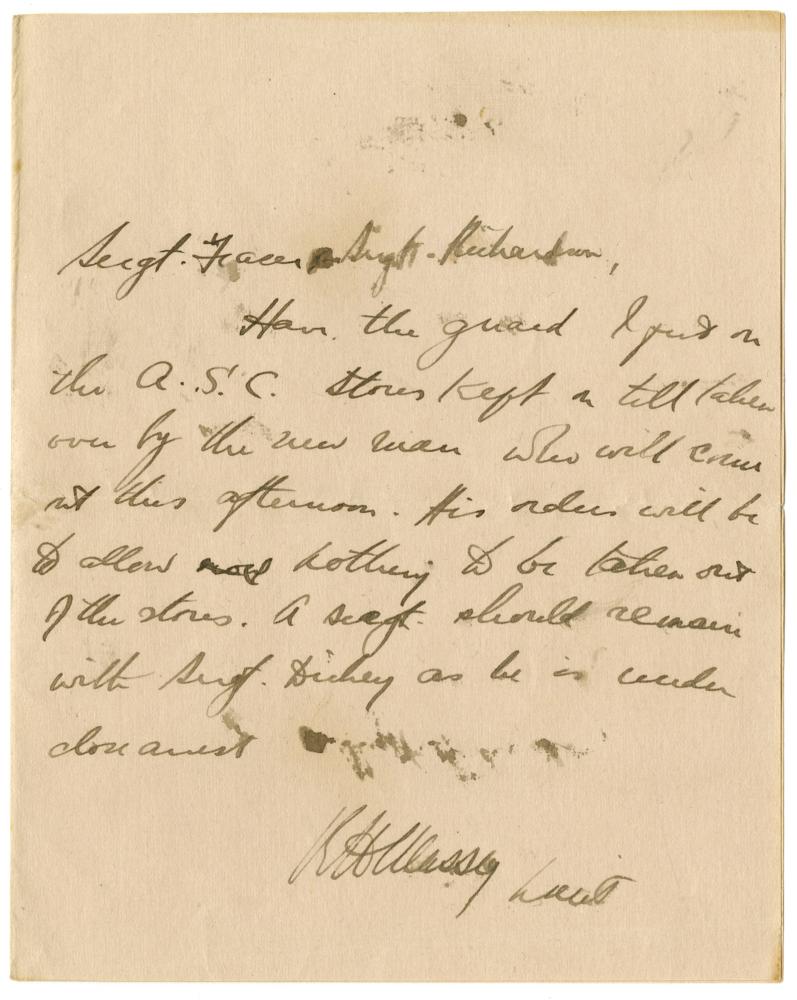 Sergt. Fraser or Sergt. Richardson,
Have the guard I put on
the A.S.C. stores kept on till taken
over by the new man who will come
out this afternoon. His orders will be
to allow nothing to be taken out
of the stores. A sergt. should remain
with Sergt. Dickey as he is under
close arrest
R H Massey Lieut